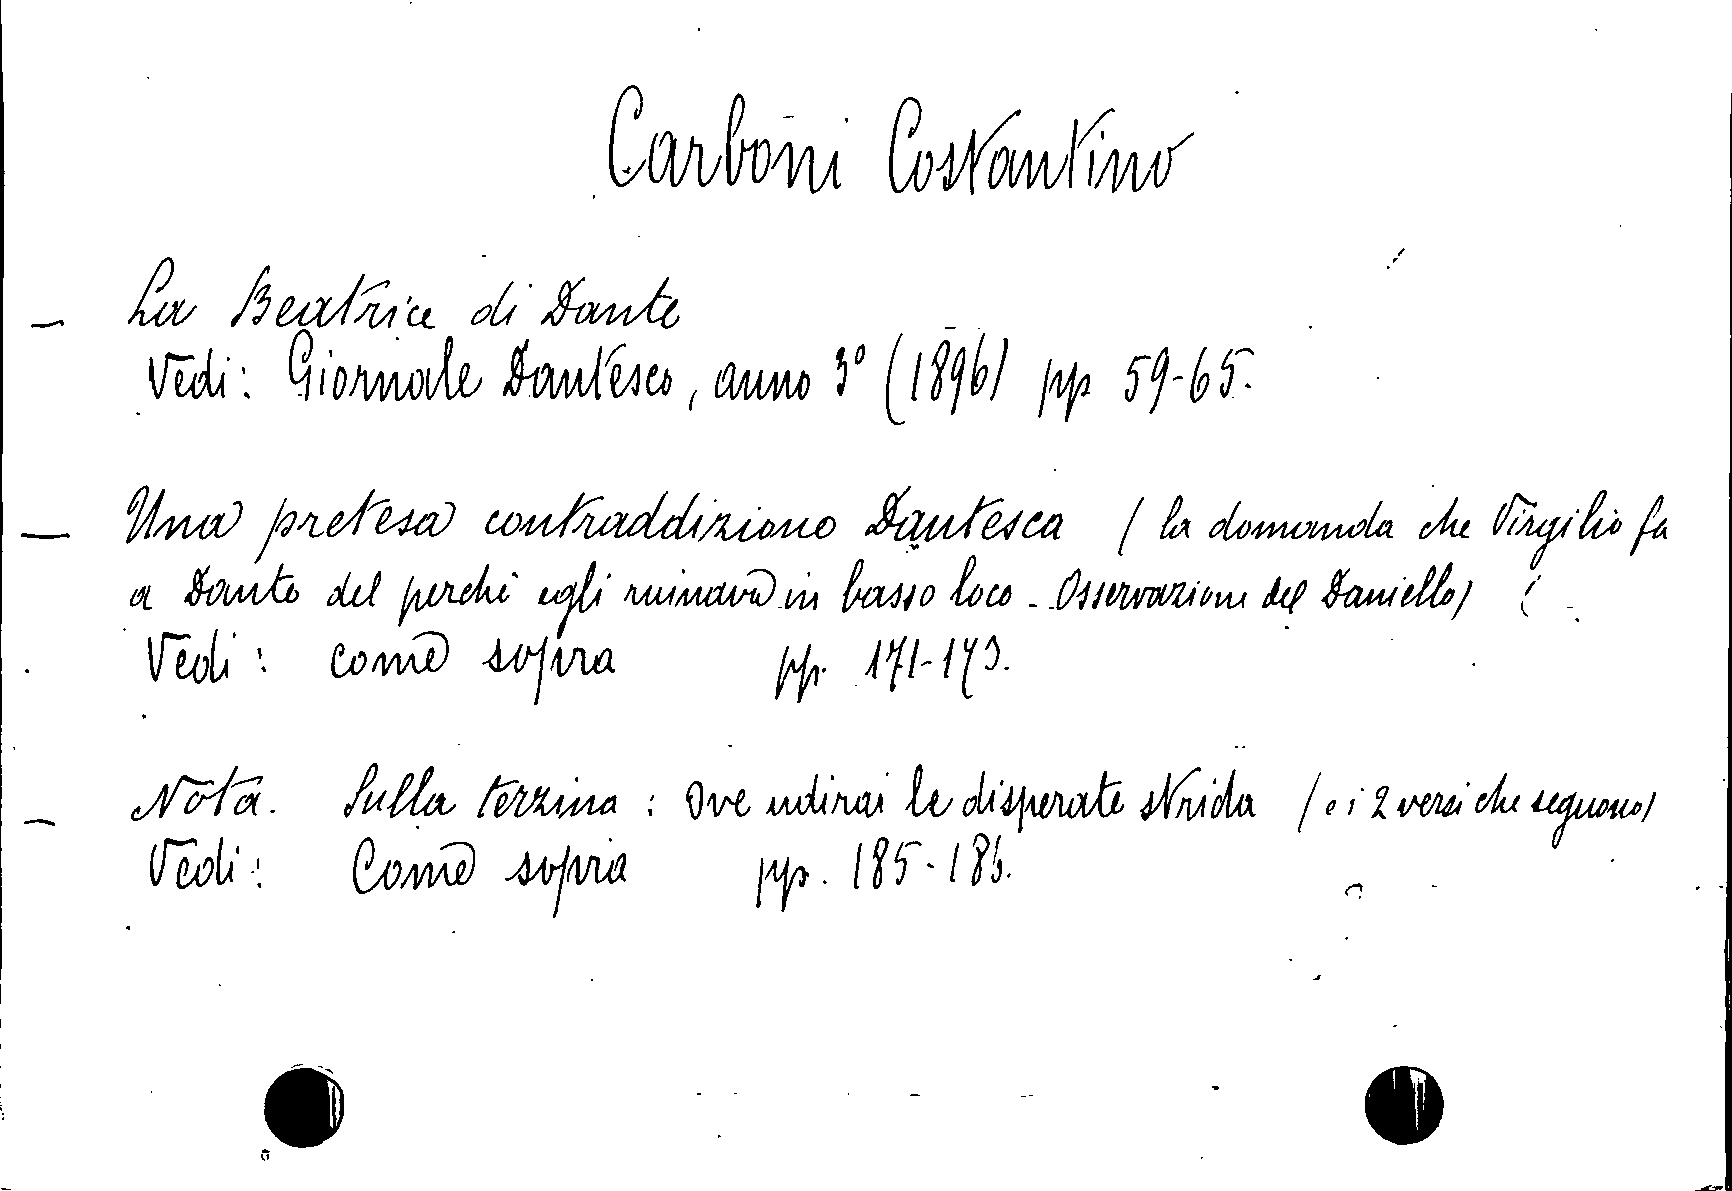 Carboni Costantino
— La Beatrice di Dante
Vedi: Giornale Dantesco, anno 3° (1896) pp 59-65.
— Una pretesa contraddizione Dantesca (la domanda che Virgilio fa
a Dante del perchè egli ruinava in basso loco - Osservazione del Daniello)
Vedi: come sopra pp. 171-173.
— Nota. Sulla terzina: Ove udirai le disperate strida (e i 2 versi che seguono)
Vedi: Come sopra pp. 185-186.